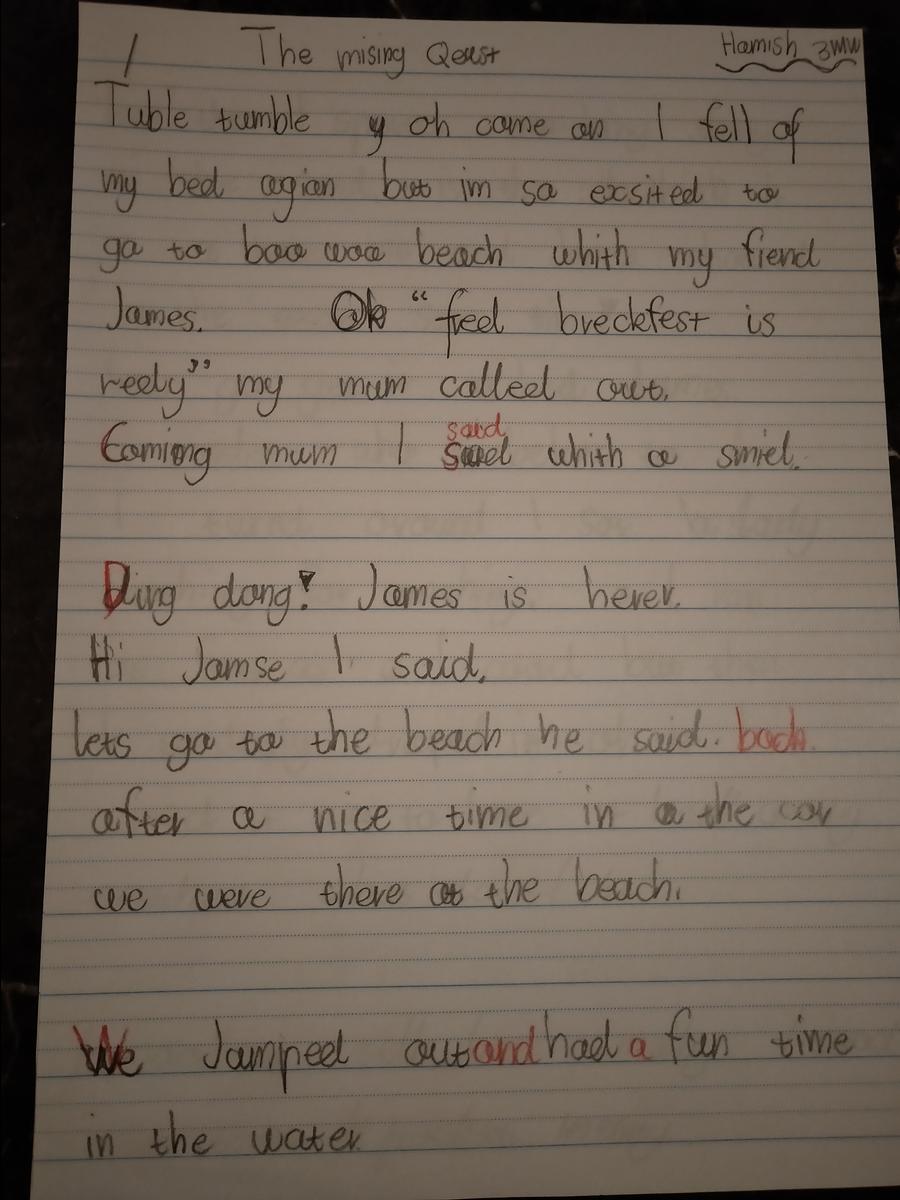 1 The mising Qeust Hamish 3MW
Tuble tumble y oh come on I fell of
my bed agian but im so exsited to
go to boo woo beach whith my fiend
James. Ok “feel breckfest is
reely” my mum called out.
Coming mum I said whith a smiel.
Ding dong! James is herer.
Hi Jamse I said,
lets go to the beach he said. back
after a nice time in a the car
we were there at the beach.
We Jumped out and had a fun time
in the water